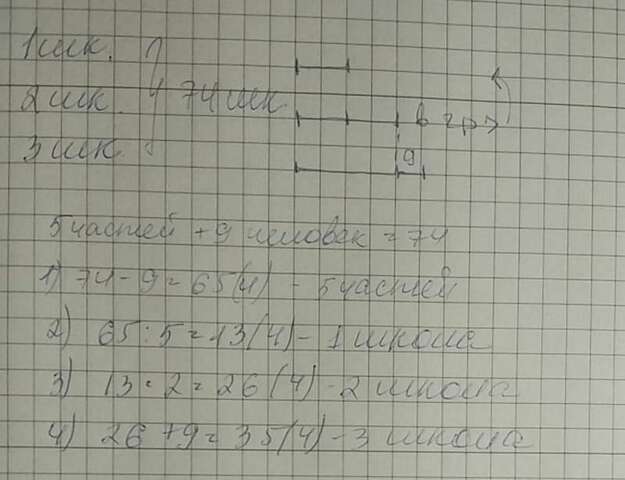 1 шк.
2 шк. } 74 шк. в 2 р >
3 шк. 9
5 частей + 9 человек = 74
1) 74 - 9 = 65 (ч) - 5 частей
2) 65 : 5 = 13 (ч) - 1 школа
3) 13 · 2 = 26 (ч) - 2 школа
4) 26 + 9 = 35 (ч) - 3 школа